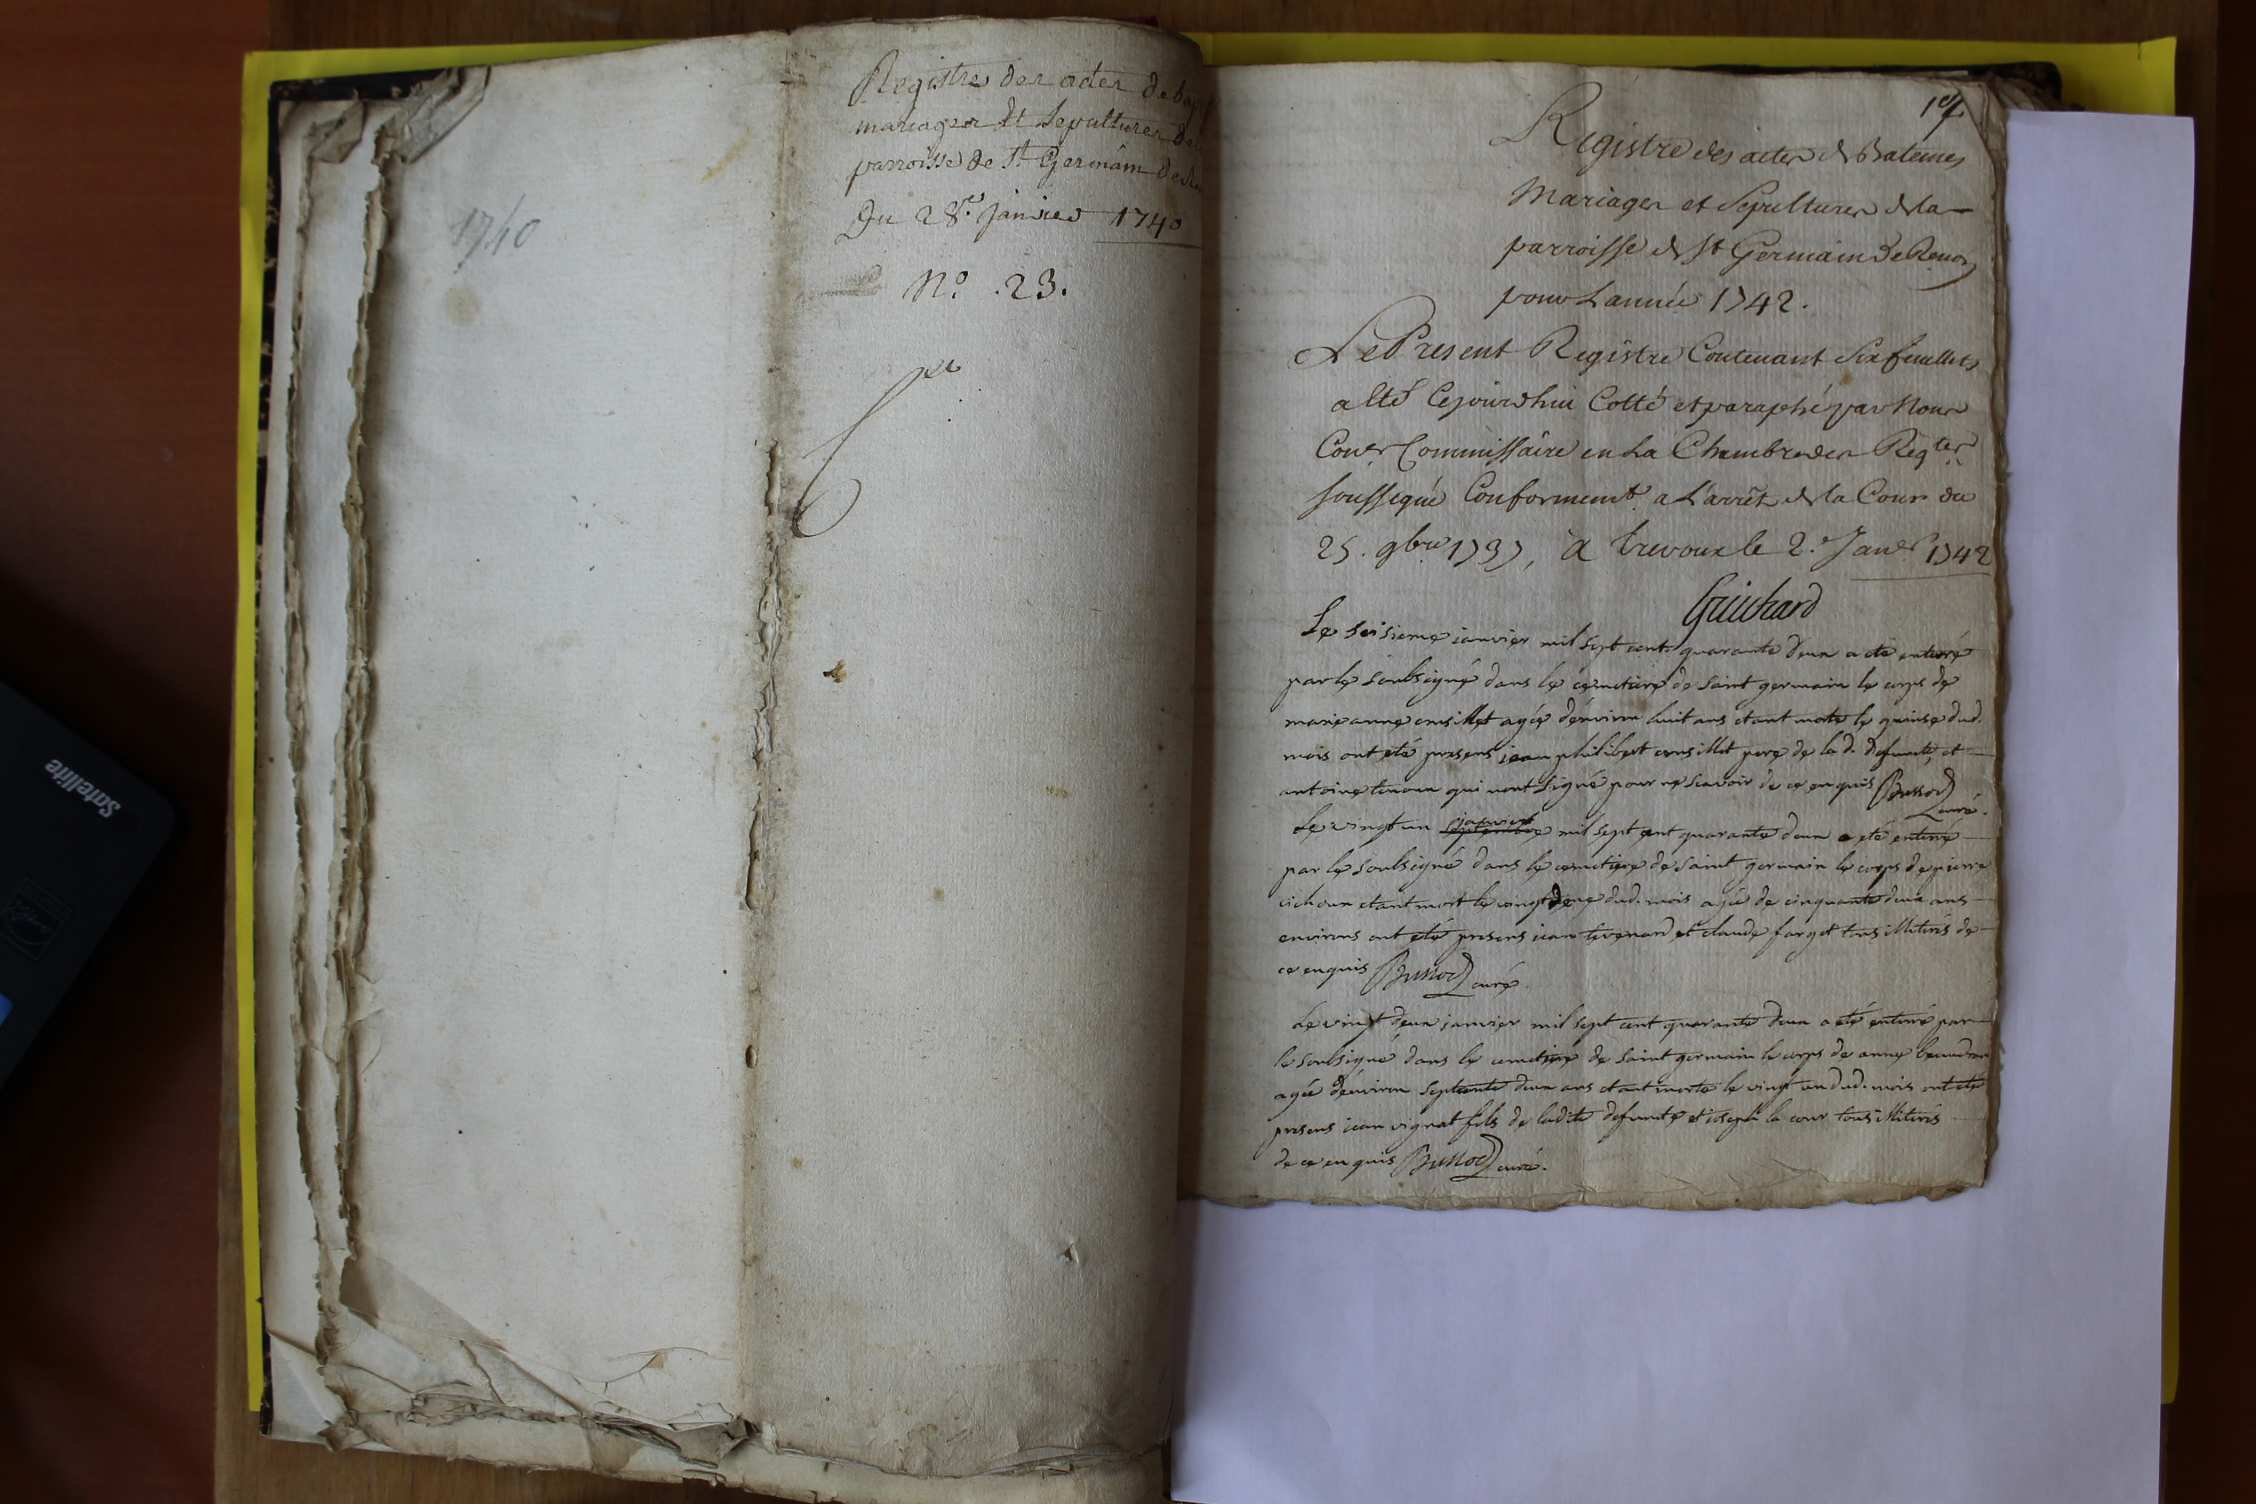 1740
Registre des actes de bap
mariages Et Sepultures de
parroisse de St Germain de
Du 28e. Janvier 1740
No. 23.
1er
Registre des actes de Batemes
Mariages et Sepultures de la
parroisse de St Germain de Renon
pour Lannée 1742.
Le Present Registre Contenant Six feuillets
a Eté Cejourdhui Cotté et paraphé par Nous
Coner Commissaire en La Chambre des Regtes
soussigné Conformemt a L'arrêt de la Cour du
25. 9bre 1737, a Trevoux le 2.e Janer 1742
Guichard
Le seisieme ianvier mil sept cent quarante deux a eté enterré
par le soubsigné dans le cemetiere de saint germain le corps de
marie anne agée d'environ huit ans etant morte le quinse dud.
mois ont eté presens iean philibert pere de la d. defunte, et
antoine qui nont signé pour ne scavoir de ce enquis Bussod
curé.
Le vingt un septembre ianvier mil sept cent quarante deux a eté enterré
par le soubsigné dans le cemetiere de saint germain le corps de pierre
etant mort le vingt dud. mois agé de cinquante deux ans
environs ont eté presens iean tevenard et claude farget tous illiterés de
ce enquis Bussod curé.
Le vingt deux ianvier mil sept cent quarante deux a eté enterré par
le soubsigné dans le cemetiere de saint germain le corps de anne
agée d'environ septante deux ans etant morte le vingt un dud. mois ont eté
presens iean vignat fils de ladite defunte et ioseph la cour tous illiterés
de ce enquis Bussod curé.
Satellite